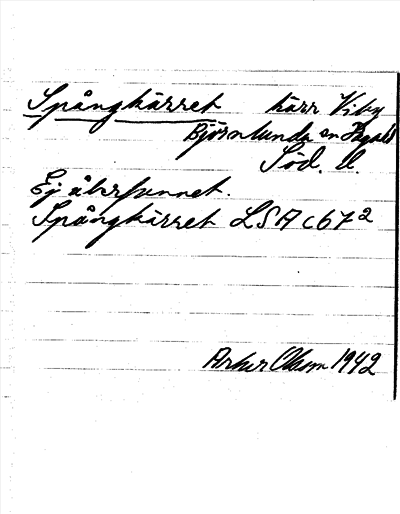 Spångkärret kärr Viby
Björnlunda sn
Söd. l.
Ej återfunnet.
Spångkärret LSA C67²
Olsson 1942